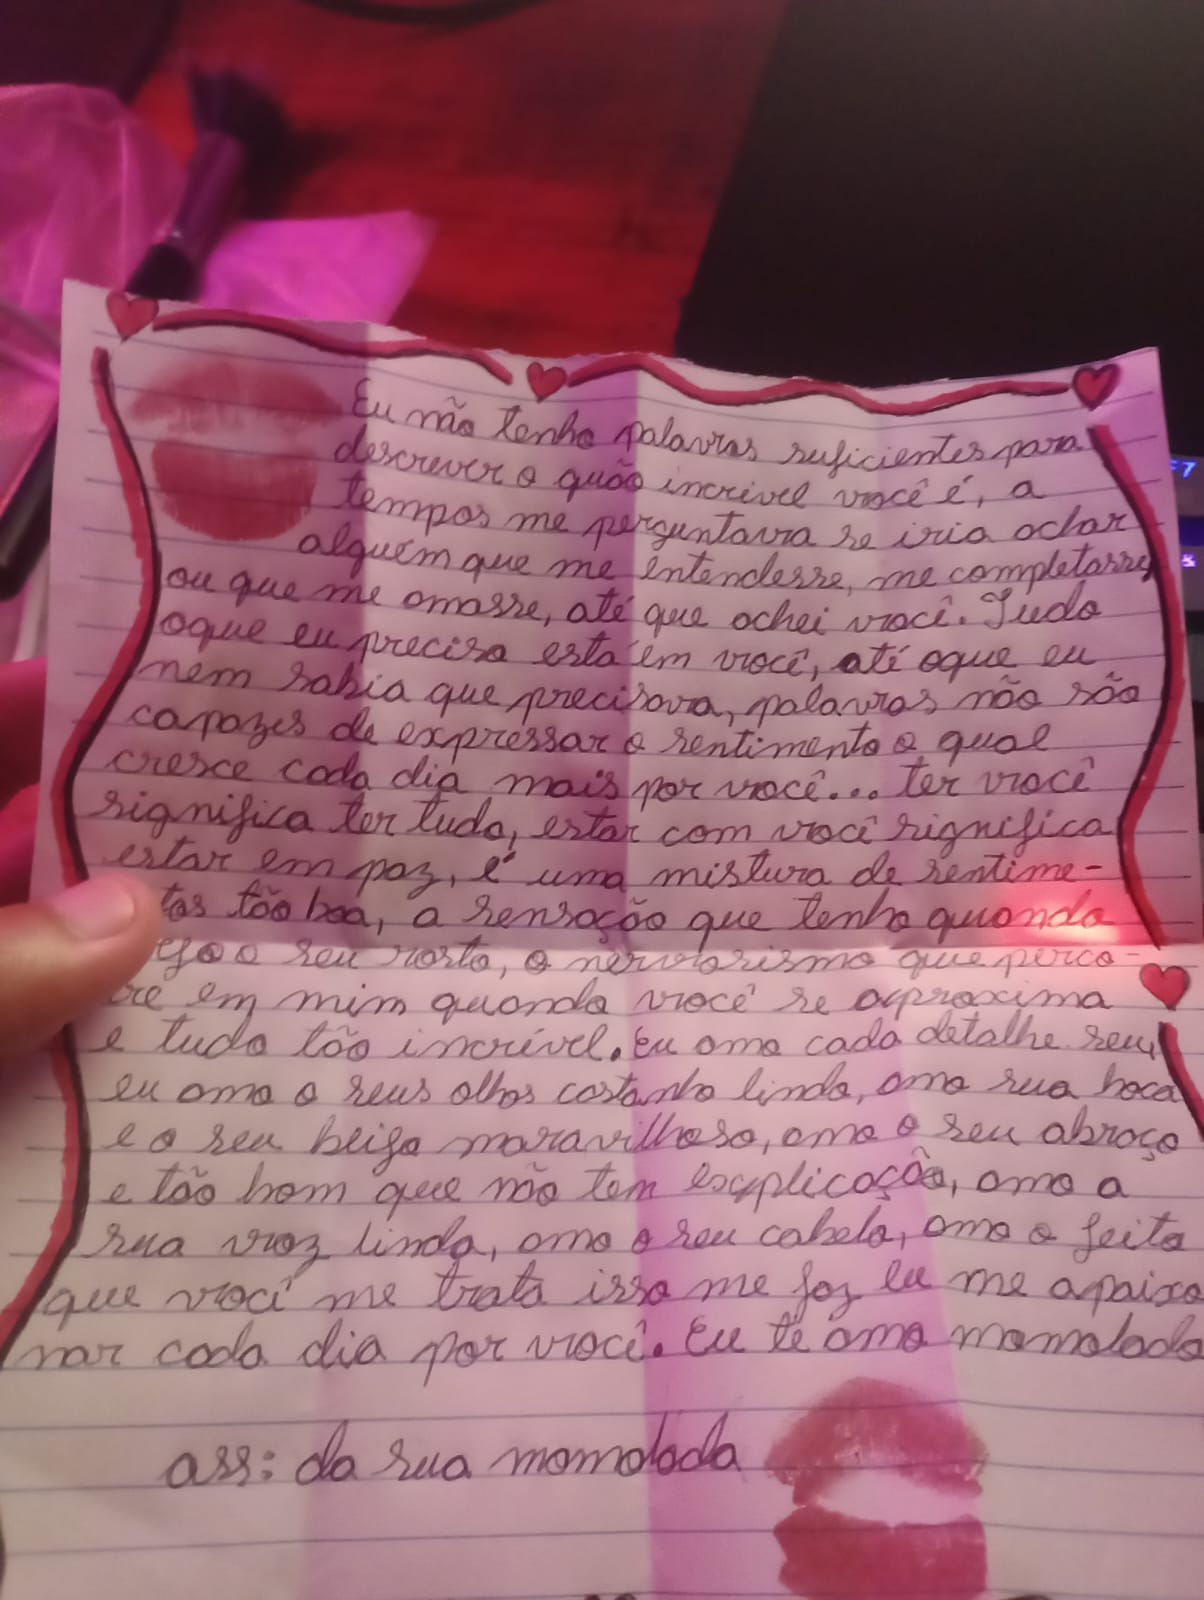 Eu não tenho palavras suficientes para
descrever o quão incrivel você é, a
tempos me perguntava se iria achar
alguém que me entendesse, me completasse
ou que me amasse, até que achei você. Tudo
oque eu preciso está em você, até oque eu
nem sabia que precisava, palavras não são
capazes de expressar o sentimento o qual
cresce cada dia mais por você... ter você
significa ter tudo, estar com você significa
estar em paz, é uma mistura de sentime-
tos tão boa, a sensação que tenho quando
o seu rosto, o nervosismo que perco-
rre em mim quando você se aproxima
e tudo tão incrível. Eu amo cada detalhe seu,
eu amo o seus olhos castanho lindo, amo sua boca
e o seu beijo maravilhoso, amo o seu abraço
e tão bom que não tem explicação, amo a
sua voz linda, amo o seu cabelo, amo o jeito
que você me trata isso me faz eu me apaixo
nar cada dia por você. Eu te amo momolada
ass: da sua momolada
F7